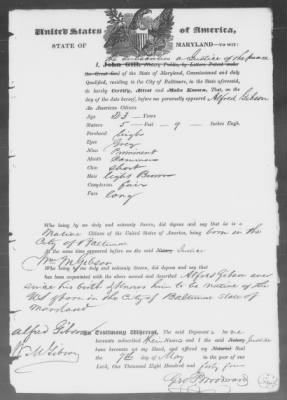 United States of America,
STATE OF MARYLAND—TO WIT:
the Subscriber a Justice of the peace
I, John Gill, Notary Public, by Letters Patent under
the Great Seal of the State of Maryland, Commissioned and duly
Qualified, residing in the City of Baltimore, in the State aforesaid,
do hereby Certify, Attest and Make Known, That, on
the day of the date hereof, before me personally appeared Alfred Gibson
An American Citizen
Age 23 Years
Stature 5 Feet 9 Inches Engh.
Forehead high
Eyes Grey
Nose Prominent
Mouth Common
Chin short
Hair light Brown
Complexion fair
Face long
Who being by me duly and solemnly Sworn, did depose and say that he is a
Native Citizen of the United States of America, being born in the
City of Baltimore
At the same time appeared before the said Notary Justice
Wm McGibson
Who being by me duly and solemnly Sworn, did depose and say that
has been acquainted with the above named and described Alfred Gibson ever
since his birth & knows him to be native of the
US & born in the City of Baltimore State of
Maryland
Alfred Gibson
Wm McGibson
In Testimony Whereof, The said Deponents have
hereunto subscribed their Names and I the said Notary Justice
have hereunto set my Hand, and affixed my Notarial
the 7th day of May in the year of our
Lord, One Thousand Eight Hundred and forty four
Geo Woodward